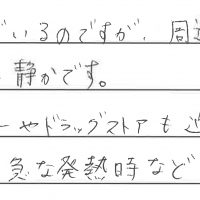 いるのですが、周
静かです。
ーやドラッグストアも近
急な発熱時など